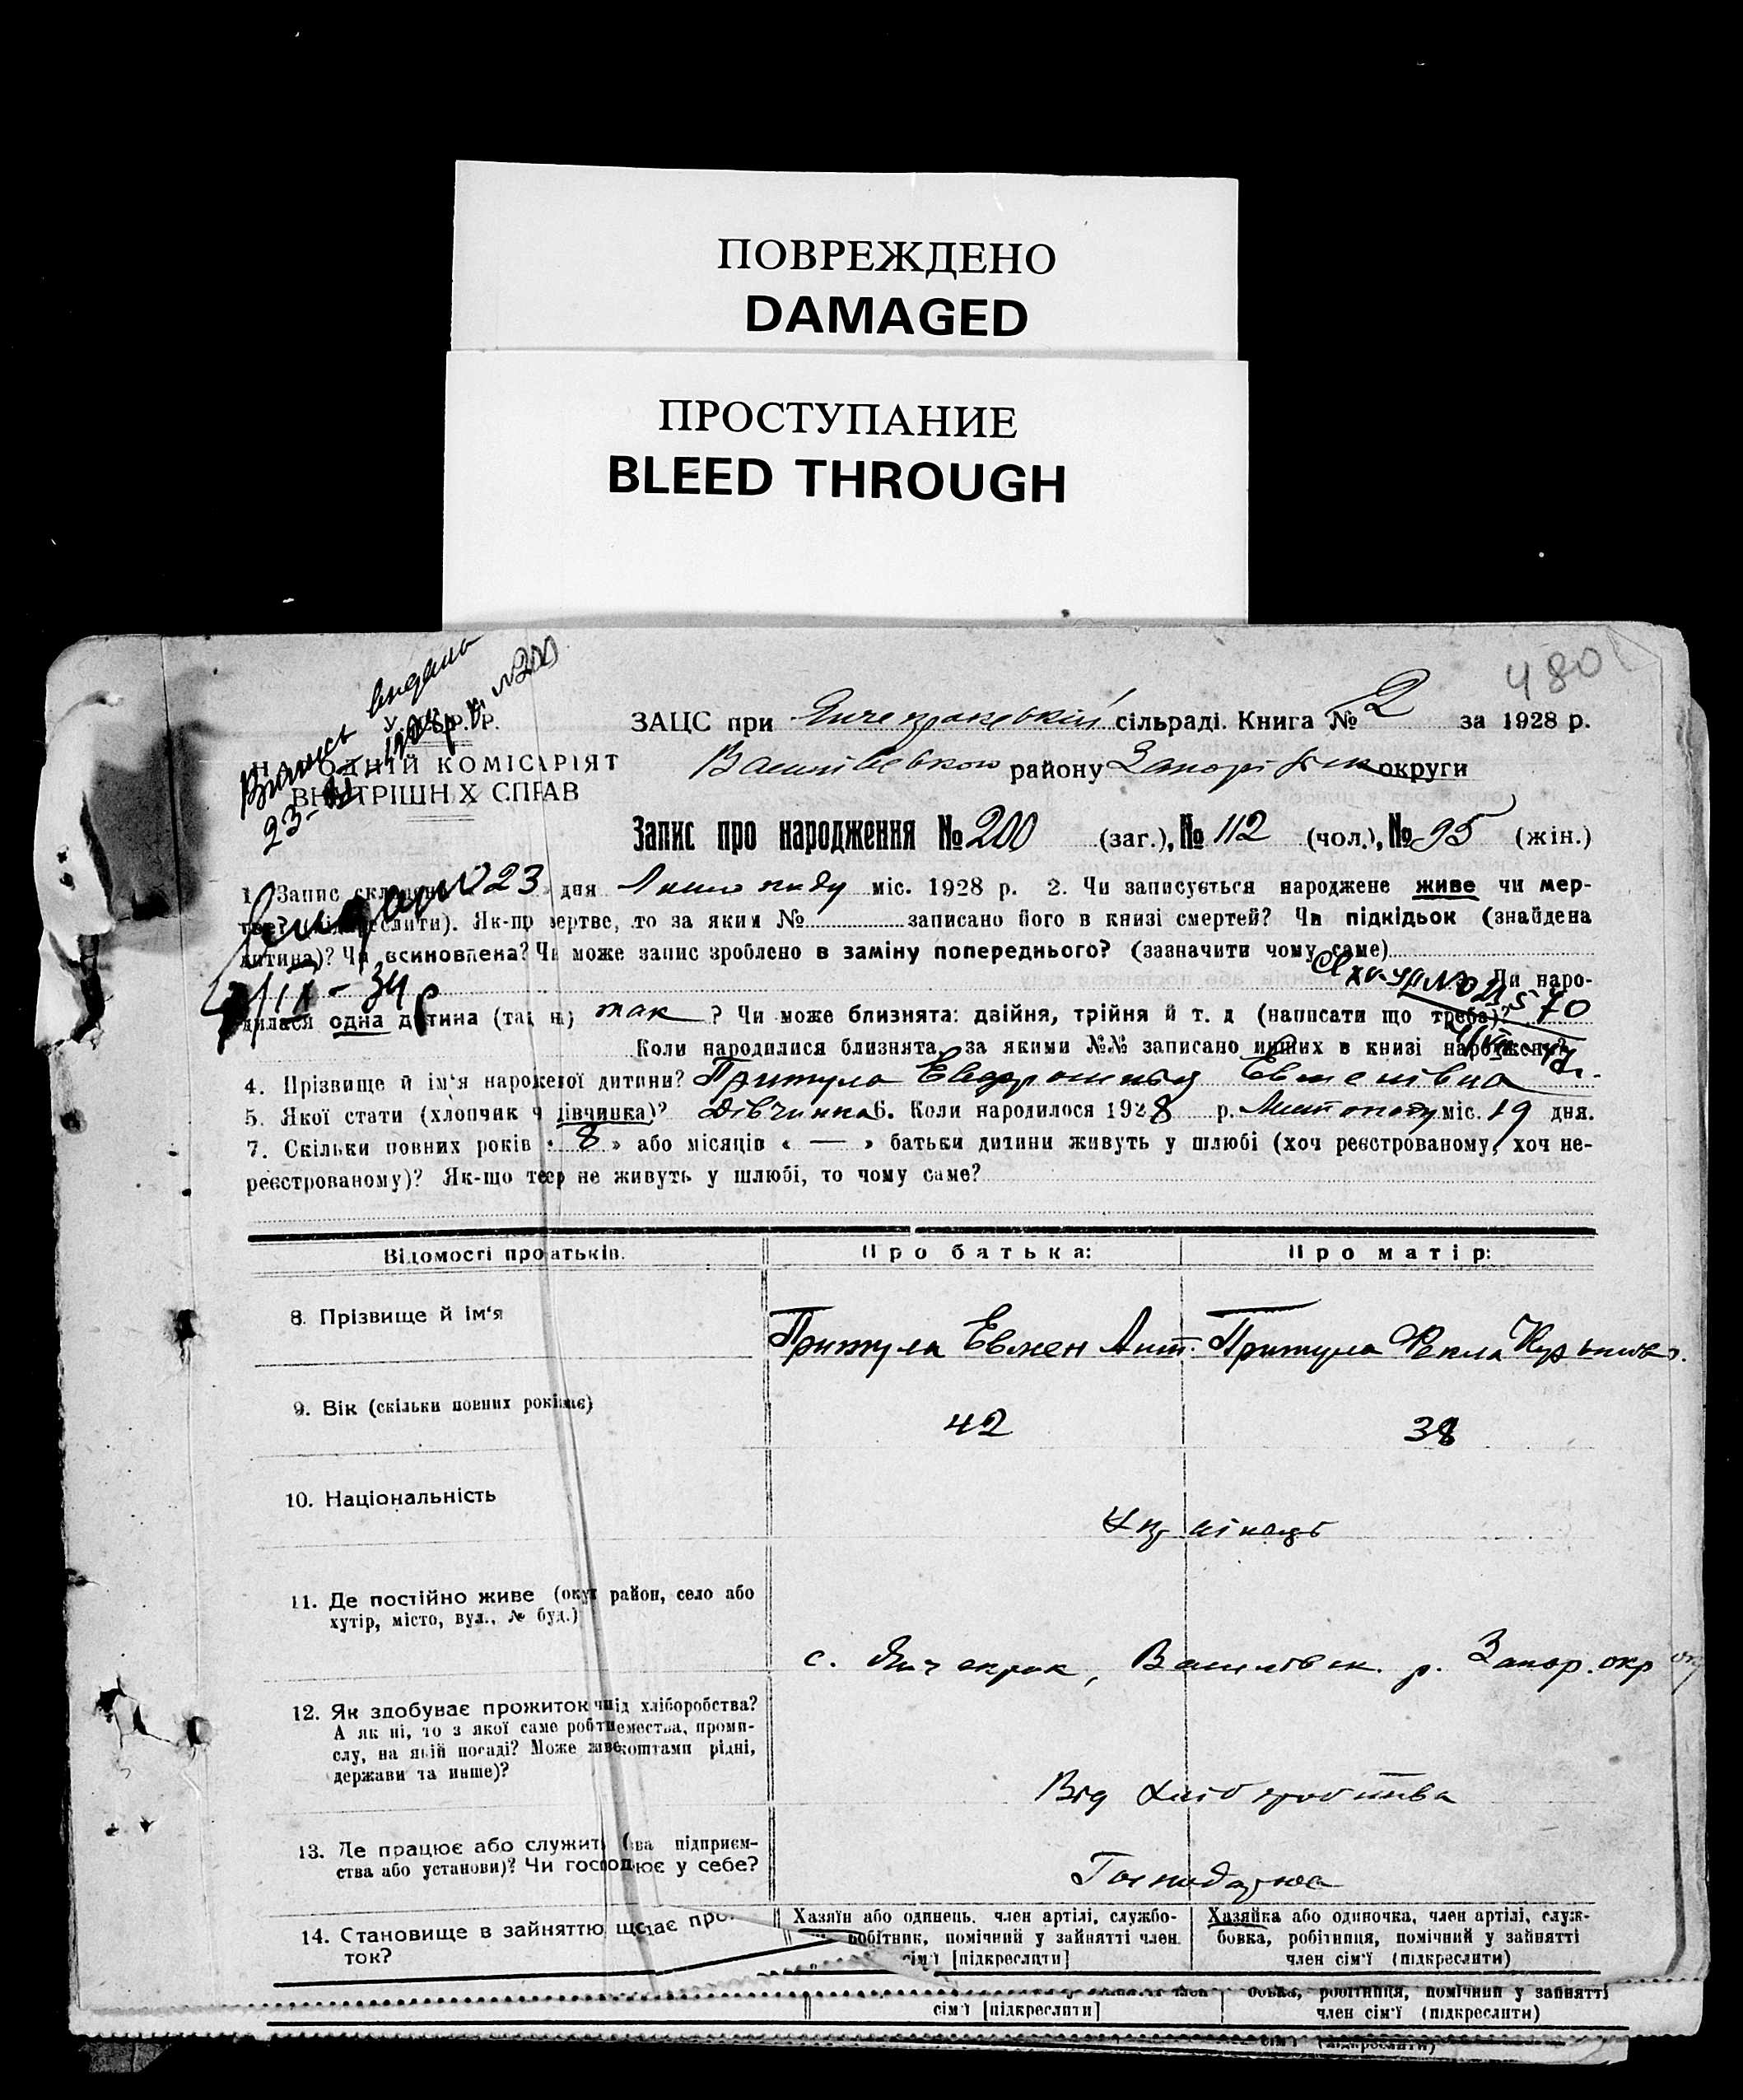 ПОВРЕЖДЕНО
DAMAGED
ПРОСТУПАНИЕ
BLEED THROUGH
480
Випись видана
23- №200
ЗАЦС при сільраді. Книга № 2 за 1928 р.
ОДНІЙ КОМІСАРІЯТ
Василівського району Запоріжж округи
ВНУТРІШНІХ СПРАВ
Запис про народження № 200 (заг.), № 112 (чол.), № 95 (жін.)
1. Запис 23 дня Листопаду міс. 1928 р. 2. Чи записується народжене живе чи мер-
тве? Як-що мертве, то за яким № записано його в книзі смертей? Чи підкідьок (знайдена
дитина)? Чи всиновлена? Чи може запис зроблено в заміну попереднього? (зазначити чому саме)
Чи наро-
дилася одна дитина (так, ні) так ? Чи може близнята: двійня, трійня й т. д (написати що треба)? 70
Коли народилися близнята, за якими №№ записано инших в книзі
4. Прізвище й ім'я дитини? Притула Евдрошкыя Евменівна
5. Якої стати (хлопчик чи дівчинка)? Дівчинка 6. Коли народилося 1928 р. Листопаду міс. 19 дня.
7. Скільки повних років « 8 » або місяців « — » батьки дитини живуть у шлюбі (хоч реєстрованому, хоч не-
реєстрованому)? Як-що не живуть у шлюбі, то чому саме?
Відомості про батьків. Про батька: Про матір:
8. Прізвище й ім'я
Притула Евмен Ант. Притула Фекла
9. Вік (скільки повних років має)
42 38
10. Національність
Українець
11. Де постійно живе (округ район, село або
хутір, місто, вул., № буд.)
с. Янчекрак, Василівськ. р. Запор. окр
12. Як здобуває прожиток чи від хліборобства?
А як ні, то з якої саме роботи промис-
слу, на якій посаді? Може живе коштами рідні,
держави та инше)?
Від хліборобства
13. Де працює або служить підприєм-
ства або установи)? Чи господарює у себе?
14. Становище в зайняттю, що дає про-
ток?
Хазяїн або одинець, член артілі, службо-
робітник, помічний у зайнятті член
сім'ї [підкреслити]
Хазяйка або одиночка, член артілі, служ-
бовка, робітниця, помічний у зайнятті
член сім'ї (підкреслити)
бовка, робітниця, помічний у зайнятті
сім'ї [підкреслити] член сім'ї (підкреслити)
сім'ї (підкреслити)